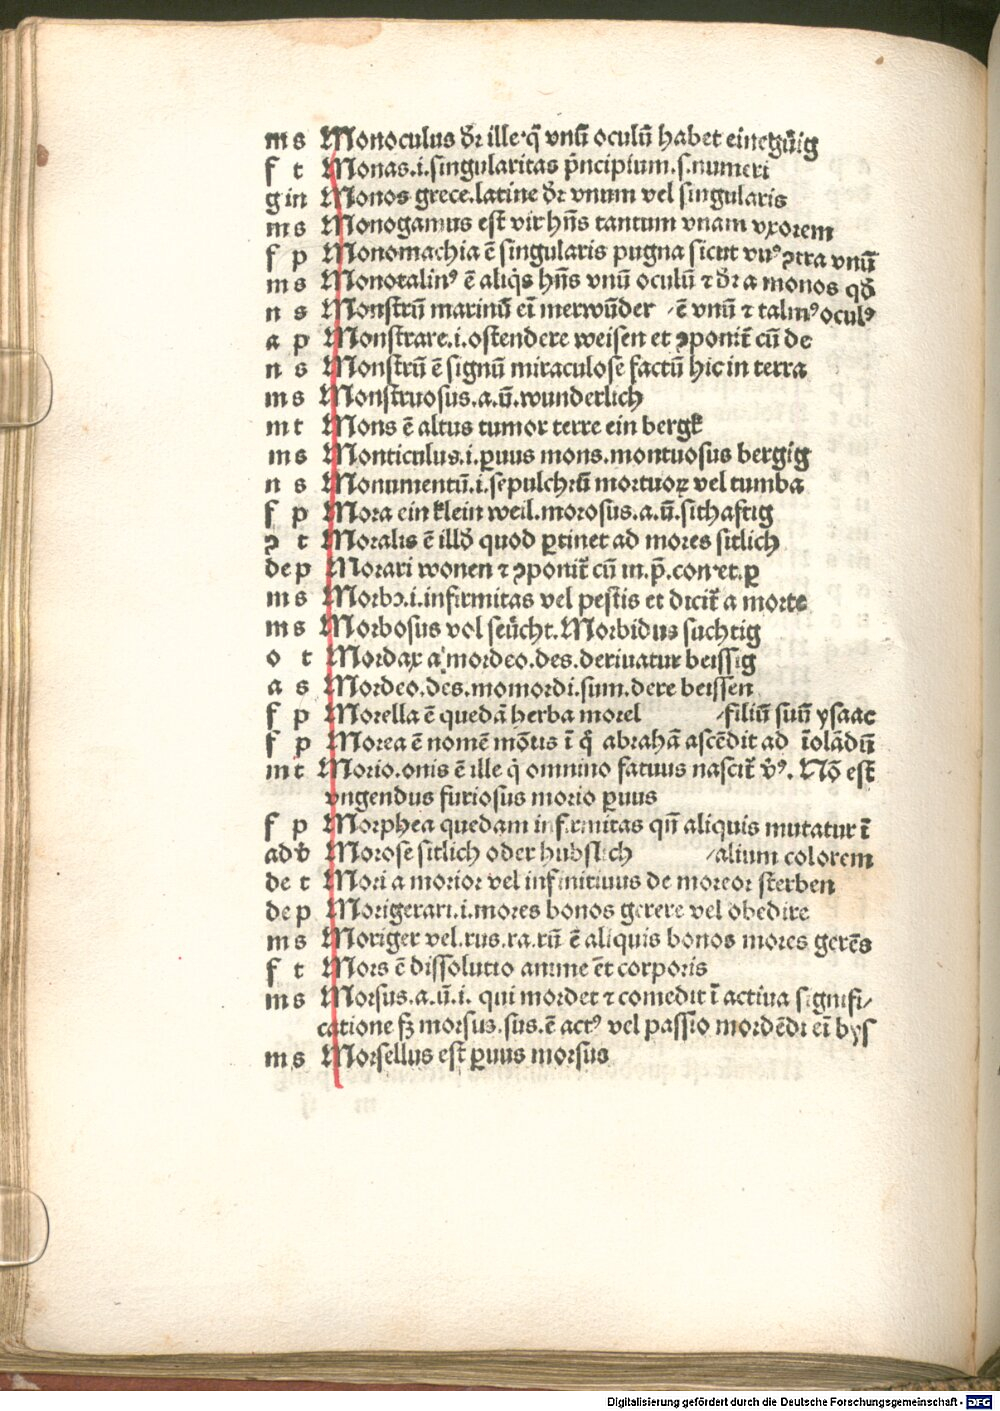 m s Monoculus dr̄ ille q̄ vnū oculū habet einegu̇ig
f t Monas.i.singularitas p̄ncipium.s.numeri
g in Monos grece.latine dr̄ vnum vel singularis
m s Monogamus est vir hn̄s tantum vnam vxorem
f p Monomachia ē singularis pugna sicut vnꝰ ↄtra vnū
m s Monotalinꝰ ē aliq̇s hn̄s vnū oculū ⁊ dr̄ a monos qd̄
n s Monstrū marinū ei̅ merwūder ⸗ē vnū ⁊ talmꝰ oculꝰ
a p Monstrare.i.ostendere weisen et ↄponit̄ cū de
n s Monstrū ē signū miraculose factū hic in terra
m s Monstruosus.a.ū.wunderlich
m t Mons ē altus tumor terre ein bergk
m s Monticulus.i.ꝑuus mons.montuosus bergig
n s Monumentū.i.sepulchrū mortuoꝝ vel tumba
f p Mora ein klein weil.morosus.a.ū.sithaftig
ↄ t Moralis ē illd̄ quod ꝑtinet ad mores sitlich
de p Morari wonen ⁊ ↄponit̄ cū in.p̄.con.et.ꝑ
m s Morbꝰ.i.infirmitas vel pestis et dicit̄ a morte
m s Morbosus vol seu̇cht.Morbidus suchtig
o t Mordax a mordeo.des.deriuatur beissig
a s Mordeo.des.momordi.sum.dere beissen
f p Morella ē quedā herba morel ⸗filiū suū ysaac
f p Morea ē nomē mōtis ī q̄ abrahā ascēdit ad īolādū
m t Morio.onis ē ille q̄ omnino fatuus nascit̄ v̄ꝰ. Nō est
vngendus furiosus morio ꝑuus
f p Morphea quedam infirmitas qn̄ aliquis mutatur ī
adv̄ Morose sitlich oder hubslich ⸗alium colorem
de t Mori a morior vel infinitiuus de moreor sterben
de p Morigerari.i.mores bonos gerere vel obedire
m s Moriger vel.rus.ra.rū ē aliquis bonos mores gerēs
f t Mors ē dissolutio anime et corporis
m s Morsus.a.ū.i. qui mordet ⁊ comedit ī actiua signifi⸗
catione sꝫ morsus.sus.ē actꝰ vel passio mordēdi ei̅ bys
m s Morsellus est ꝑuus morsus
Digitalisierung gefördert durch die Deutsche Forschungsgemeinschaft - DFG